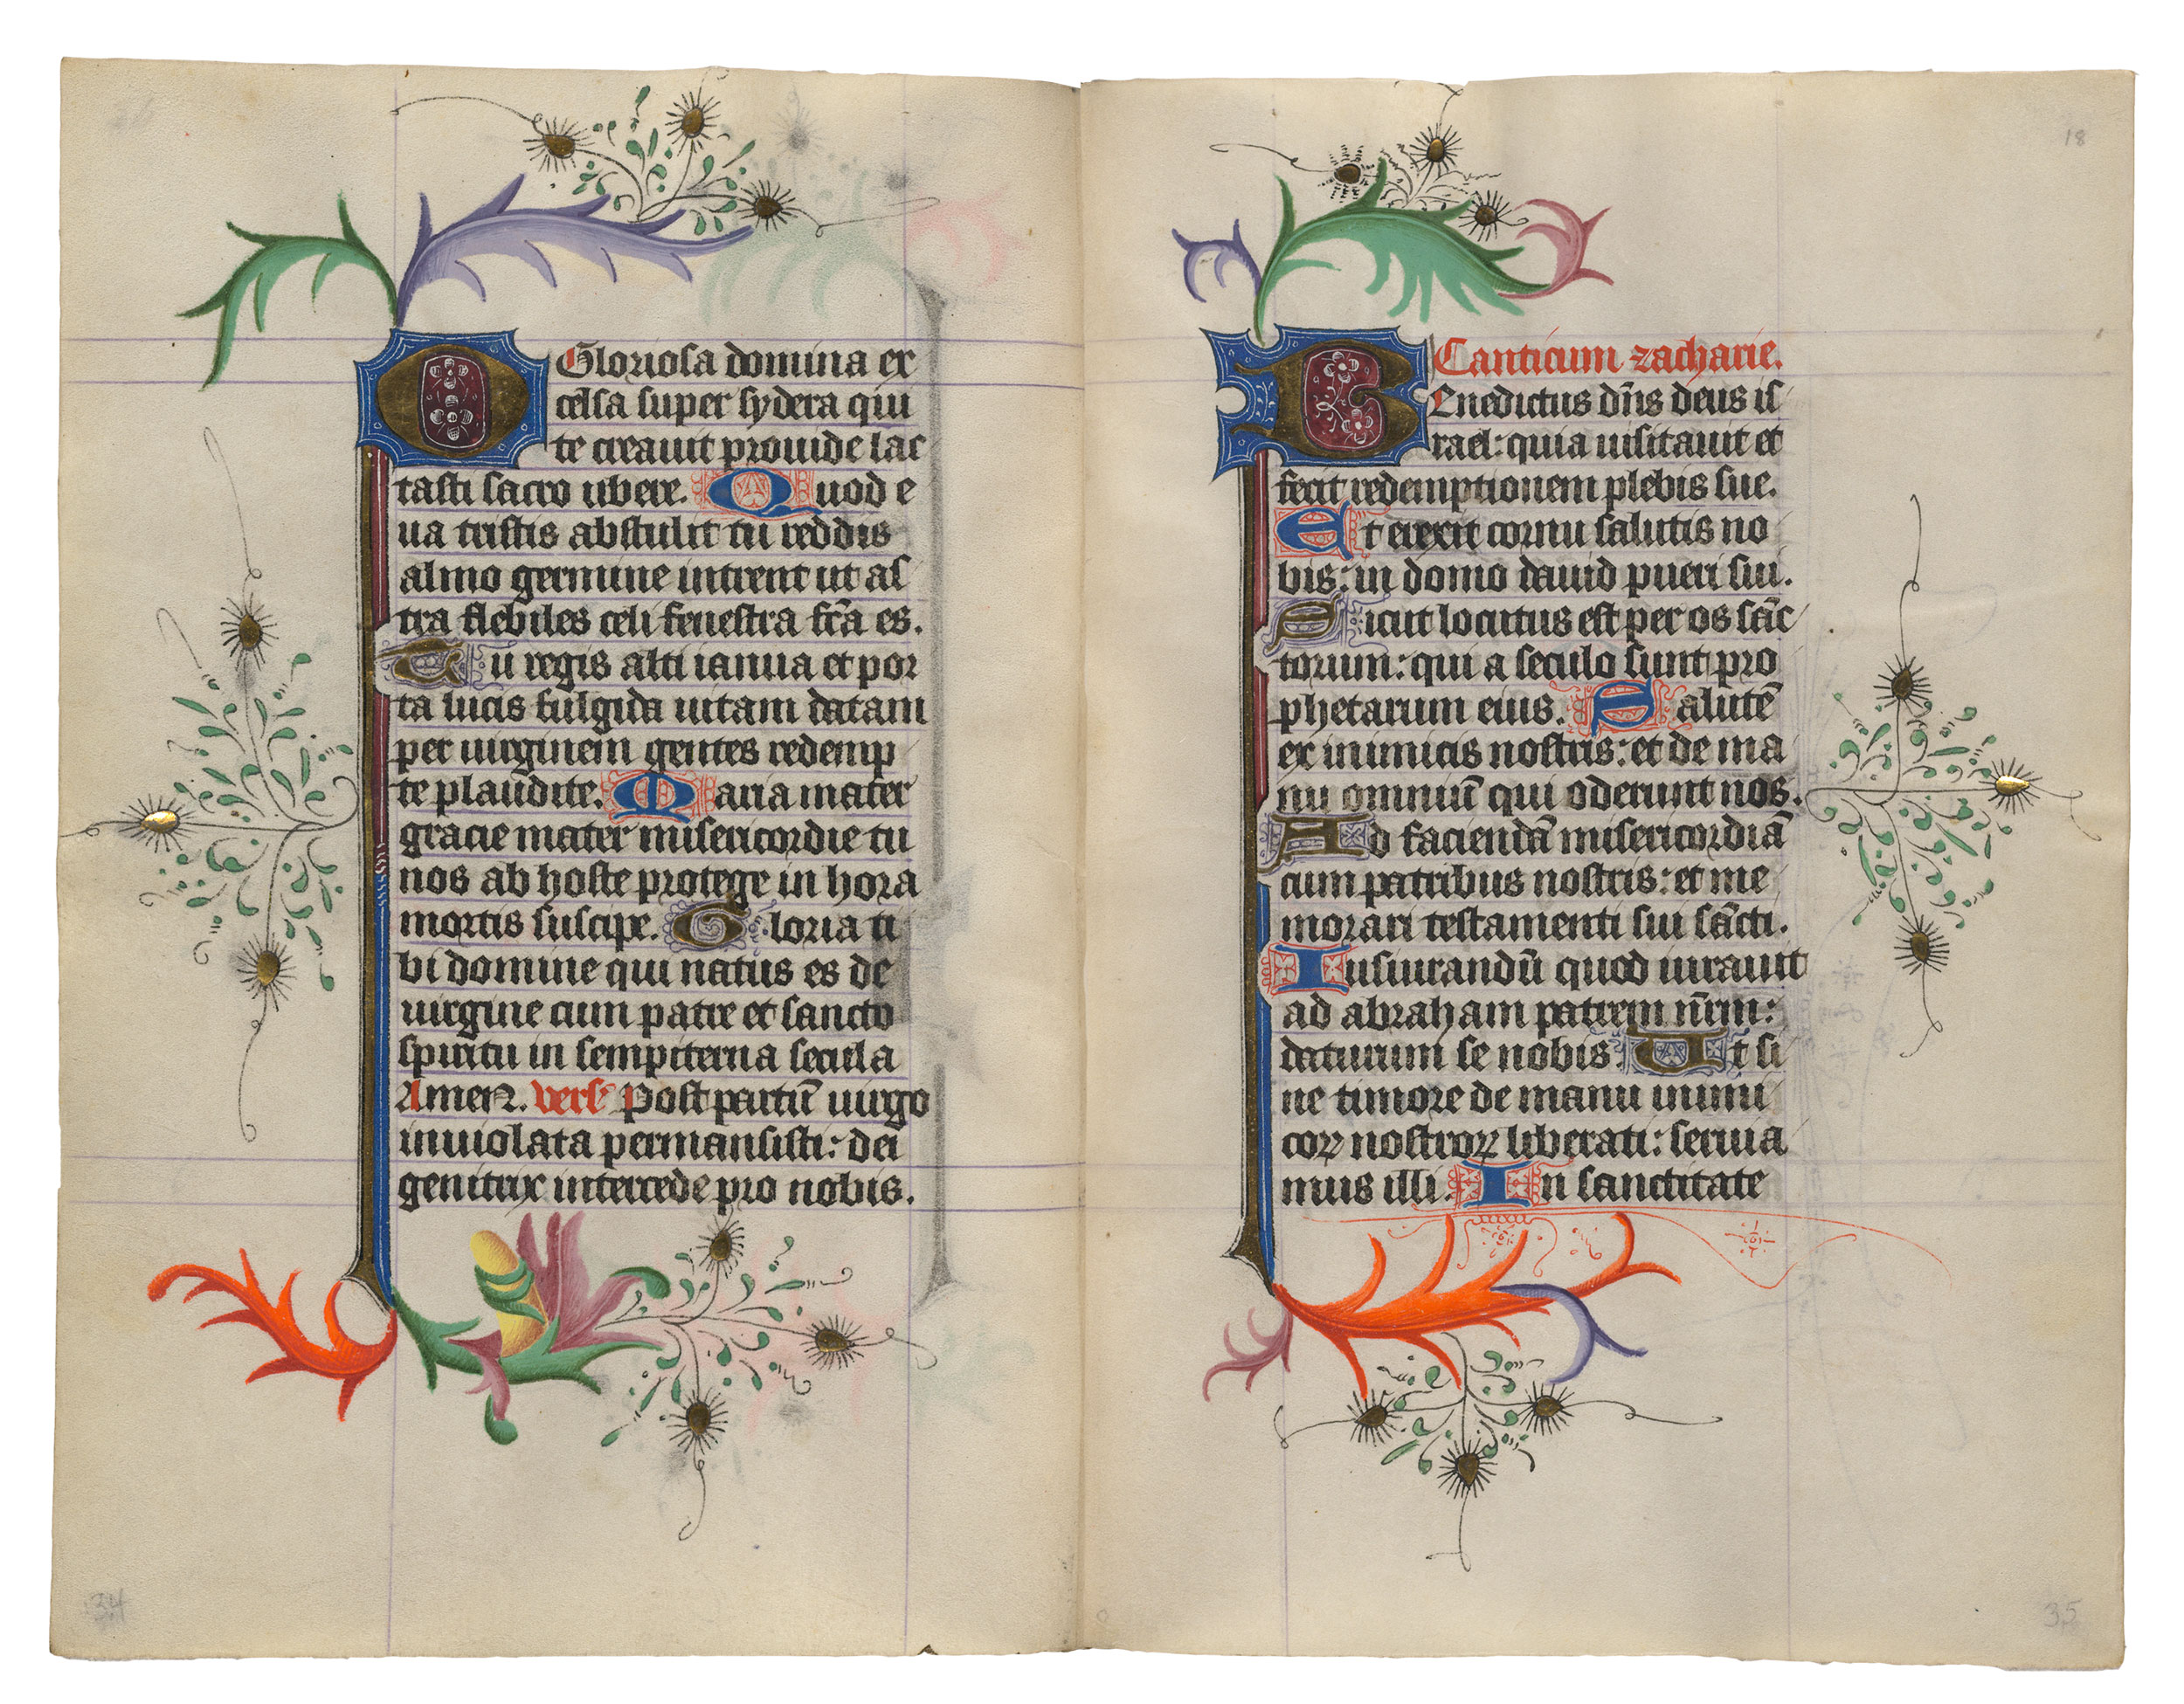 O Gloriosa domina ex
celsa super sydera qui
te creauit prouide lac
tasti sacro ubere. Quod e
ua tristis abstulit tu reddis
almo germine intrent ut as
tra flebiles celi fenestra fc̄a es.
Tu regis alti ianua et por
ta lucis fulgida uitam datam
per uirginem gentes redemp
te plaudite. Maria mater
gracie mater misericordie tu
nos ab hoste protege in hora
mortis suscipe. Gloria ti
bi domine qui natus es de
uirgine cum patre et sancto
spiritu in sempiterna secula
Amen. vers' Post partū uirgo
inuiolata permansisti: dei
genitrix intercede pro nobis.
34
18
Canticum zacharie.
Benedictus dn̄s deus is
rael: quia uisitauit et
fecit redemptionem plebis sue.
Et erexit cornu salutis no
bis: in domo dauid pueri sui.
Sicut locutus est per os sāc
torum: qui a seculo sunt pro
phetarum eius. Salutē
ex inimicis nostris: et de ma
nu omniū qui oderunt nos.
Ad faciendā misericordiā
cum patribus nostris: et me
morari testamenti sui sācti.
Iusiurandū quod iurauit
ad abraham patrem nr̄m:
daturum se nobis. Ut si
ne timore de manu inimi
coꝝ nostroꝝ liberati: seruia
mus illi. In sanctitate
35